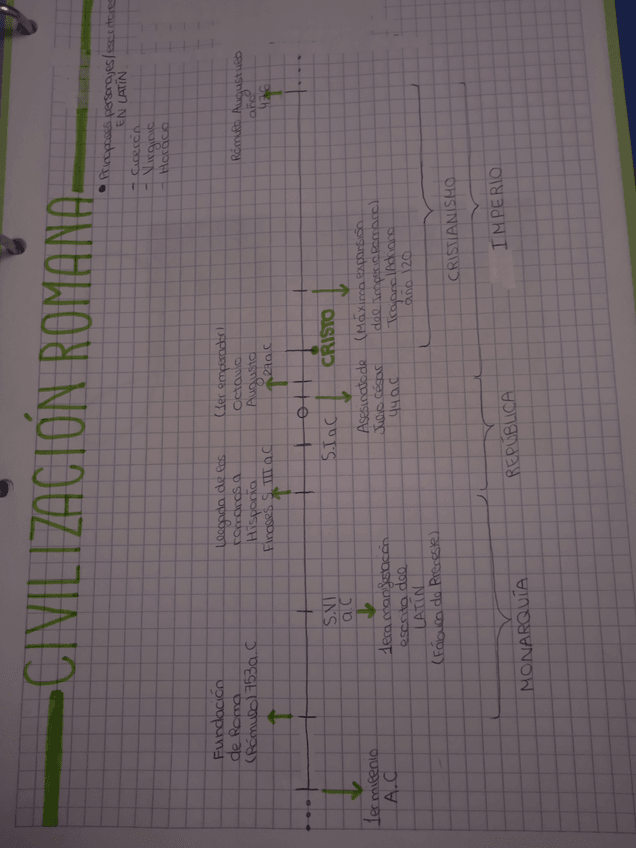 CIVILIZACIÓN ROMANA
• Principales personajes/escritores
EN LATÍN
- Cicerón
- Virginio
- Horacio
Fundación
de Roma
(Rómulo) 753a.C
Llegada de los
romanos a
Hispania
Finales S. III a.C
(1er emperador)
Octavio
Augusto
27a.C
Rómulo Augústulo
año
476
1er milenio
A.C
S.VI
a.C
1era manifestación
escrita del
LATÍN
S.I a.C
Asesinato de
Julio César
44 a.C
CRISTO
(Máxima expansión
del Imperio Romano)
Trajano/Adriano
año 120
CRISTIANISMO
MONARQUÍA
REPÚBLICA
IMPERIO